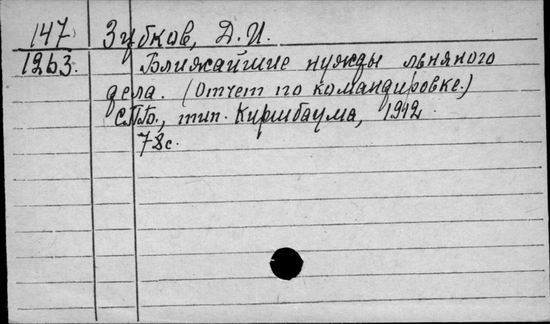 147 Зубков, Д. И.
1263. Ближайшие нужды льняного
дела. (Отчет по командировке.)
С.П.Б., тип. Киршбаума, 1912.
78с.